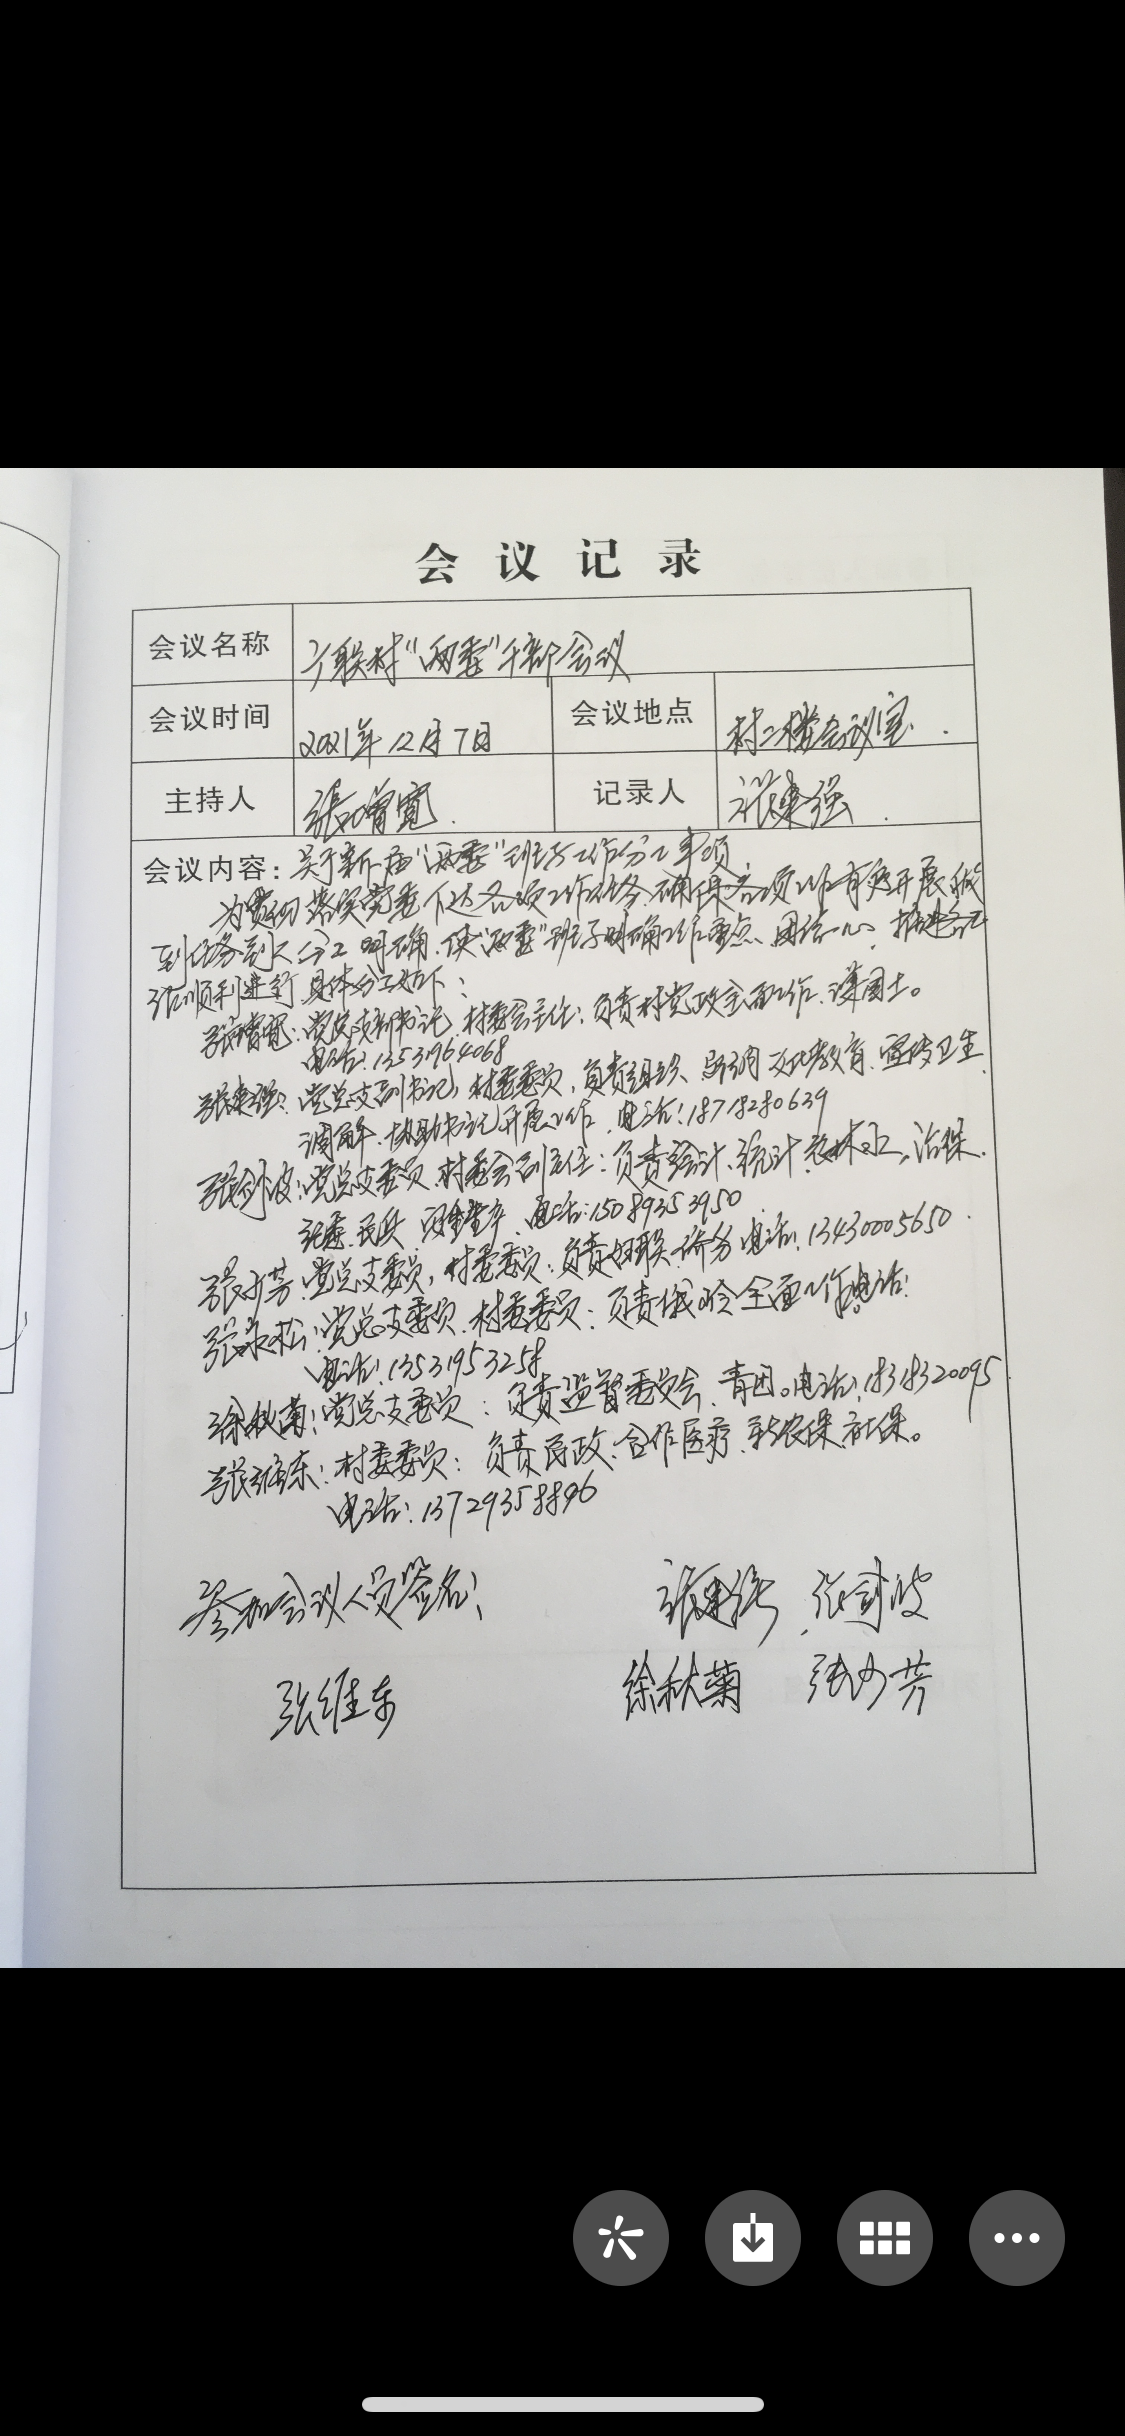 会议记录
会议名称 广联村“两委”干部会议
会议时间 2021年12月7日 会议地点 村二楼会议室.
主持人 張增寬. 记录人 张建强.
会议内容: 关于新一届“两委”班子工作分工事项
为贯彻落实党委下达各项工作任务,确保各项工作有序开展,做
到任务到人,分工明确,使“两委”班子明确工作重点、团结一心,推进
顺利进行,具体分工如下:
张增宽:党总支部书记,村委会主任:负责村党政全面工作、国土。
电话:13531964068
张建强:党总支副书记,村委委员,负责组织、文化教育、宣传卫生、
调解、协助书记开展工作,电话:18718280639
张剑波:党总支委员,村委会副主任:负责会计、统计、农林水、治保、
民兵 电话:15089353950
张少芳:党总支委员,村委委员:负责妇联、侨务 电话:13430005650
张永松:党总支委员,村委委员:负责全面工作 电话:
电话:13531953258
徐秋菊:党总支委员:负责监督委员会、青团。电话:18318320095
张维东:村委委员:负责民政、合作医疗、新农保、社保。
电话:13729358896
参加会议人员签名: 张建强 张剑波
张维东 徐秋菊 张少芳